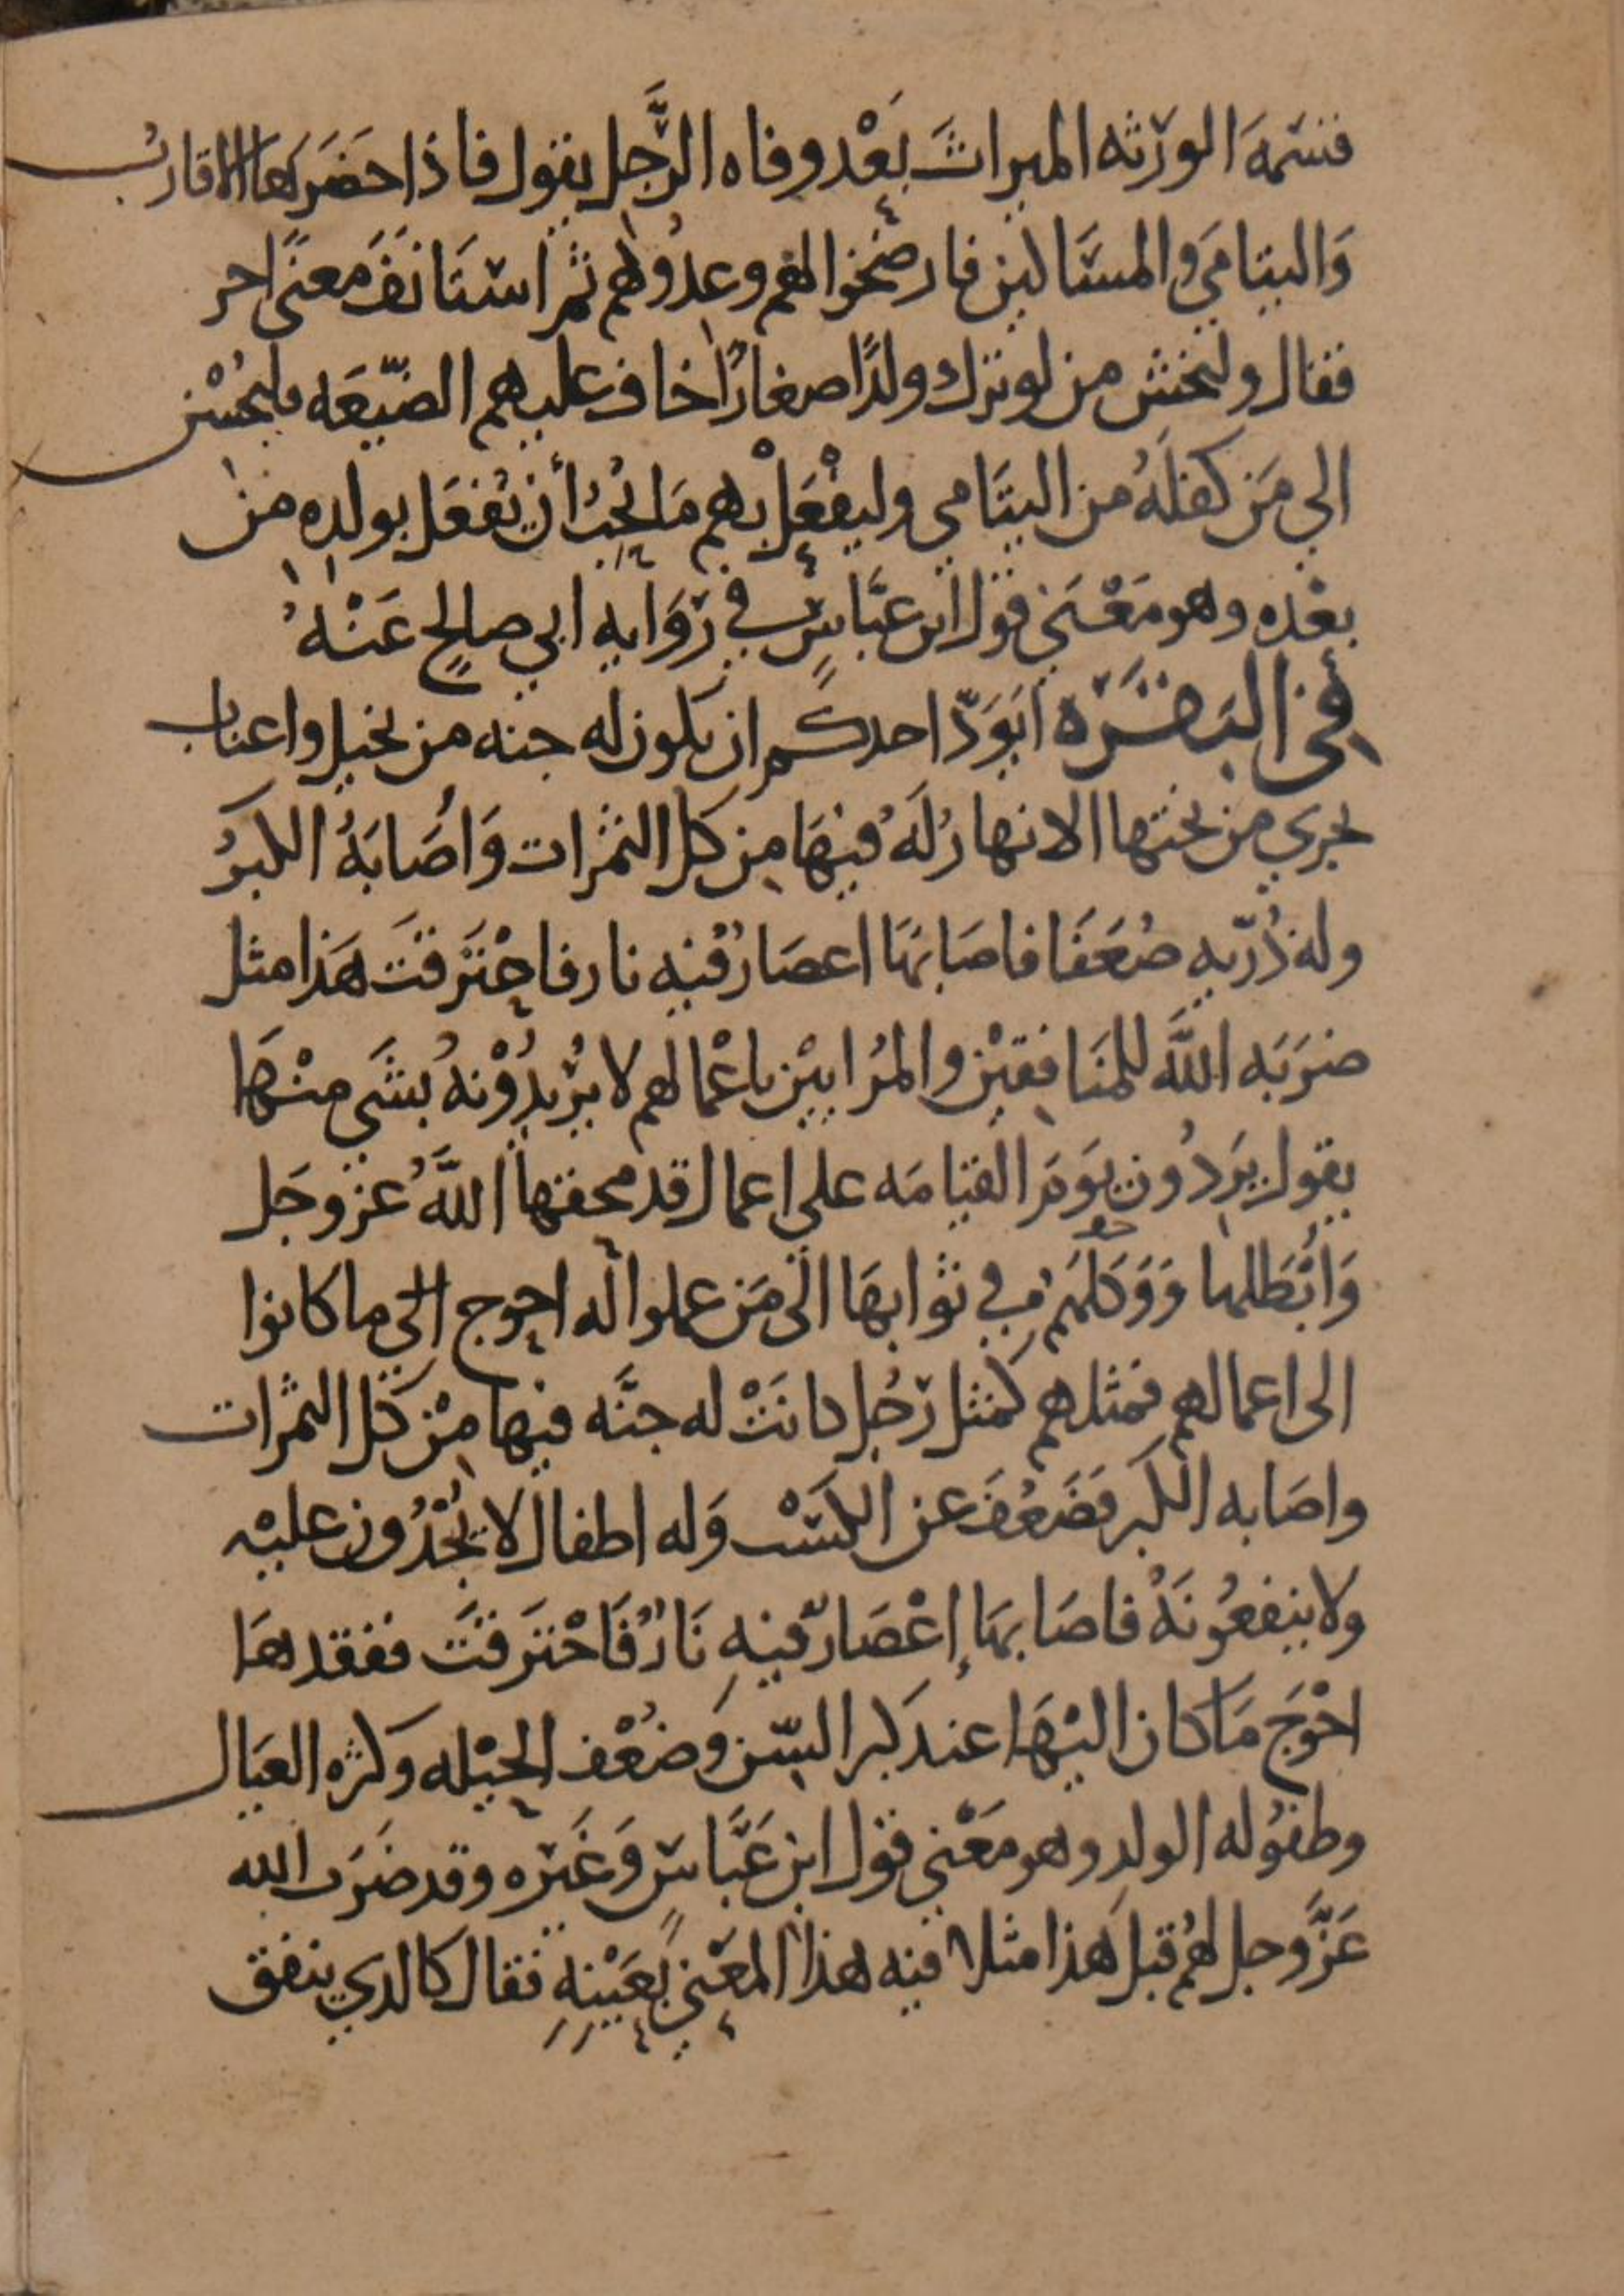 قسمة الورثه الميراث بَعْد وفاه الرَّجل يقول فاذا حَضَرَها الاقاربُ
وَاليتامَي والمسَاكين فارضَخوا لهم وعِدُوهم ثم استَانَفَ معنًى اخر
فقال وليخش من لو ترك ولدًا صغارًا خاف عليهم الضّيعَه فليُحْسِن
الي مَن كفلَهُ من اليتَامي وليفْعَلْ بهم مَا يُحِبُ أن يُفعَل بولده من
بعْده وهو مَعْنَي قول ابن عبَّاسٍ في رِوَايه ابي صالحٍ عَنْهُ
في البَقَرَه أيَوَدّ احدكم ان يكون له جنه من نخيل واعناب
تجري من تحتها الانهارُ لَهُ فيهَا مِن كل الثمرات وَأصَابَهُ الكبَرُ
وله ذُرّيه ضُعَفَا فاصَابَهَا اعصَارٌ فيه نار فاحْتَرقَت هَذا مثل
ضرَبَه اللَّه للمنَافقِيْن والمُرايِيْن باعْمالهم لا يُرْيدُوْنهُ بشَي منْهَا
يقول يَرِدُون يَوَمَ القيامَه علي اعمال قد محقها اللَّهُ عز وجَل
وَأبْطَلها وَوَكلَهُم في ثوابهَا الى مَن عملوا له احوج الي ما كانوا
الى اعمالهم فمثلهم كمثل رَجُل كانَتْ له جنَّه فيها مِنْ كل الثمرات
واصَابه الكبَر فضَعُفَ عن الكسْب وَله اطفال لا يُجْدُون عليْه
ولا ينفعُونَهُ فاصَابهَا إعْصَارٌ فيهِ نَارٌ فَاحْتَرقَت ففقدهَا
احْوَجَ مَا كان اليْهَا عند كبر السّن وَضُعْف الحيْله وَكثره العيَال
وطفُوله الولدِ وهو مَعْني قول ابن عَبَّاسٍ وَغَيْره وقد ضرَب الله
عَزَّوجل لهُم قبل هَذا مثلا فيه هذا المعْني بعَيْنِهِ فقال كالدي ينفق